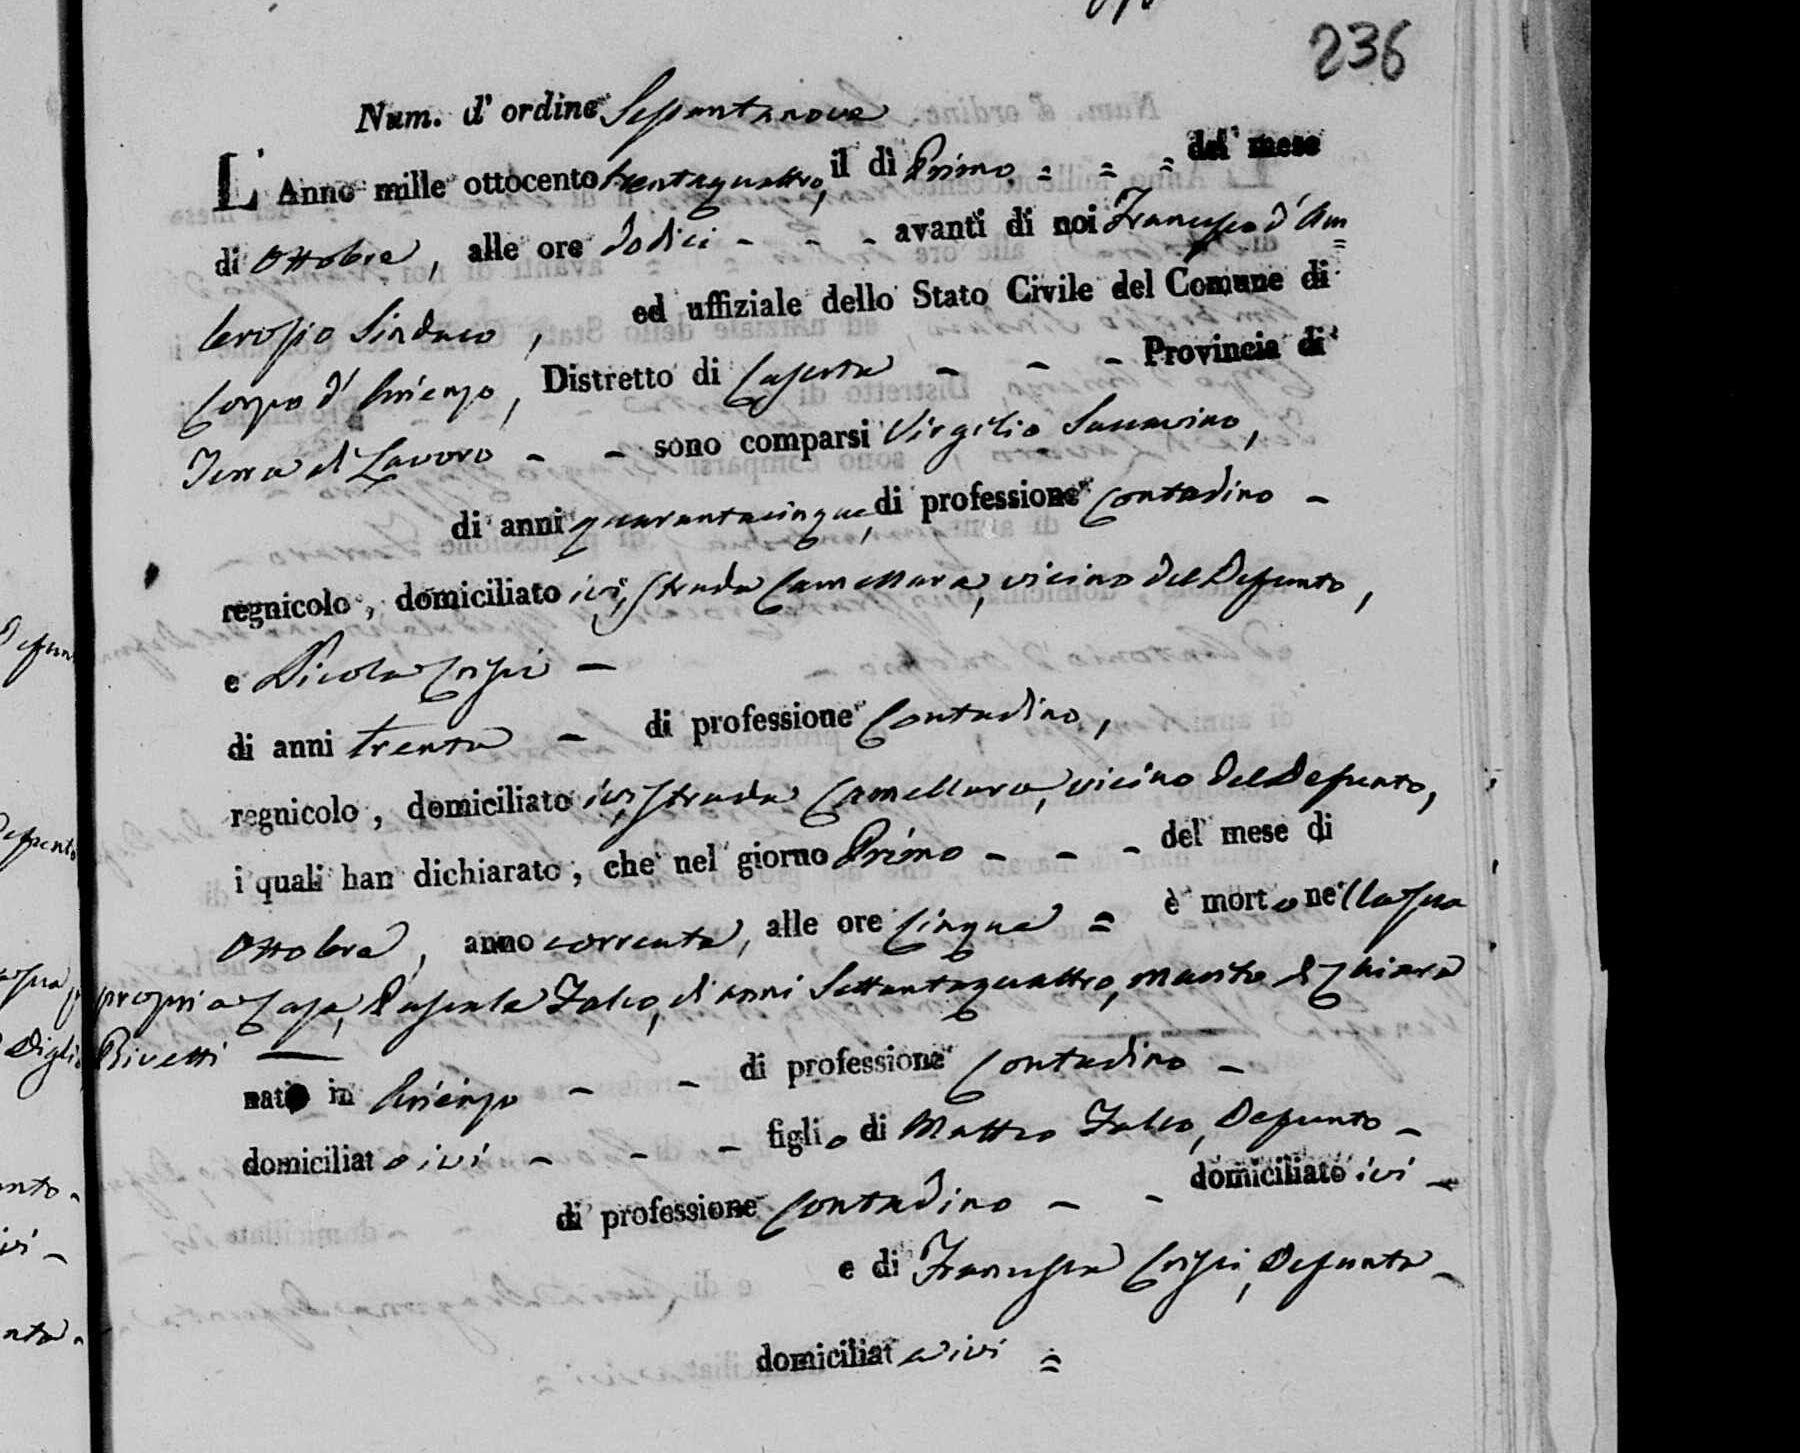 236
Num. d' ordine Sessantanove
L' Anno mille ottocento trentaquattro, il dì Primo = = = del mese
di Ottobre, alle ore dodici - - - avanti di noi Francesco d'Am=
brosio Sindaco, ed uffiziale dello Stato Civile del Comune di
Corpo d' Arienzo, Distretto di Caserta - - - Provincia di
Terra di Lavoro - - sono comparsi Virgilio
di anni quarantacinque, di professione Contadino -
regnicolo, domiciliato ivi, strada Camellara, vicino del Defunto,
e Nicola Crisci -
di anni trenta - di professione Contadino,
regnicolo, domiciliato ivi, strada Camellara, vicino del Defunto,
i quali han dichiarato, che nel giorno Primo - - - del mese di
Ottobre, anno corrente, alle ore Cinque = è morto nella sua
propria Casa, Pascale Falco, di anni Settantaquattro, marito di Chiara
Rivetti —
nato in Arienzo - - di professione Contadino -
domiciliato ivi - - - figlio di Matteo Falco, Defunto -
di professione Contadino - - domiciliato ivi -
e di Francesca Crisci, Defunta -
domiciliata ivi =